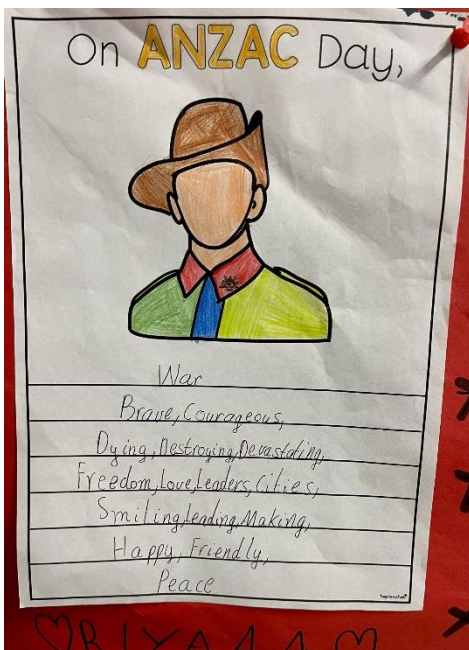 On ANZAC Day,
War
Brave, Courageous,
Dying, Destroying, Devastating,
Freedom, Love, Leaders, Cities,
Smiling, leading, Making,
Happy, Friendly,
Peace